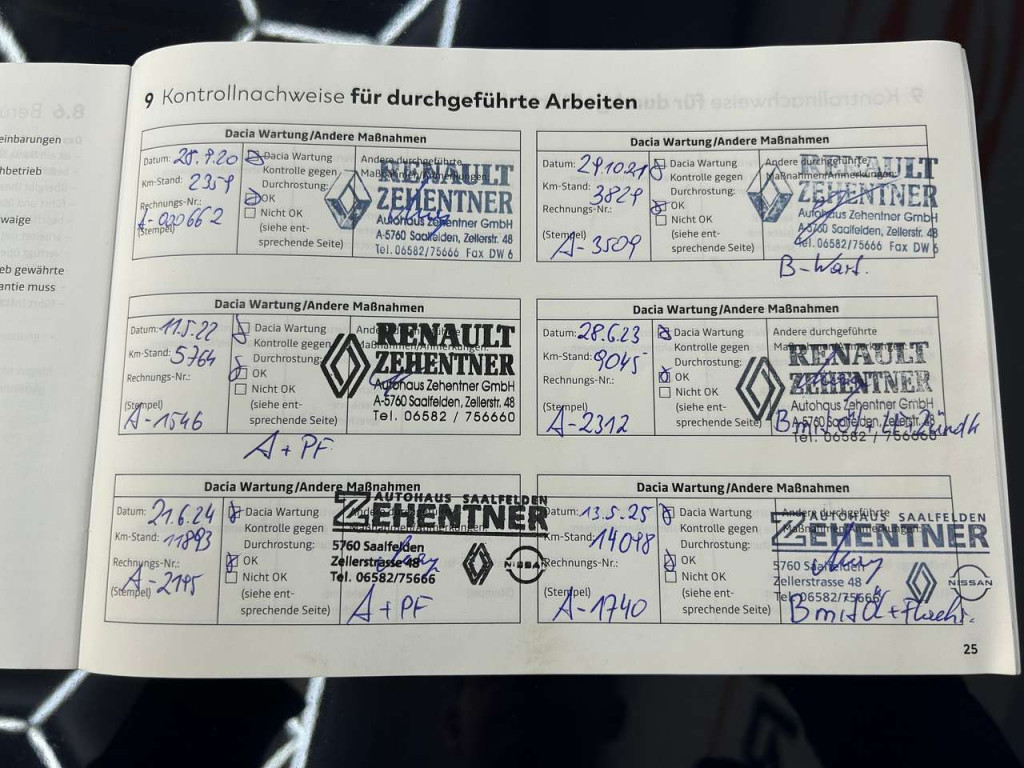 einbarungen
hbetrieb
waige
eb gewährte
antie muss
9 Kontrollnachweise für durchgeführte Arbeiten
Dacia Wartung/Andere Maßnahmen
Datum: 28.9.20
Km-Stand: 2359
Rechnungs-Nr.:
A-020662
(Stempel)
Dacia Wartung
Kontrolle gegen
Durchrostung:
OK
Nicht OK
(siehe ent-
sprechende Seite)
Andere durchgeführte
Maßnahmen/Anmerkungen:
RENAULT
ZEHENTNER
Autohaus Zehentner GmbH
A-5760 Saalfelden, Zellerstr. 48
Tel. 06582/75666 Fax DW 6
Dacia Wartung/Andere Maßnahmen
Datum: 29.10.21
Km-Stand: 3829
Rechnungs-Nr.:
(Stempel) A-3509
Dacia Wartung
Kontrolle gegen
Durchrostung:
OK
Nicht OK
(siehe ent-
sprechende Seite)
Andere durchgeführte
Maßnahmen/Anmerkungen:
RENAULT
ZEHENTNER
Autohaus Zehentner GmbH
A-5760 Saalfelden, Zellerstr. 48
Tel. 06582/75666 Fax DW 6
B-Wart.
Dacia Wartung/Andere Maßnahmen
Datum: 11.5.22
Km-Stand: 5764
Rechnungs-Nr.:
(Stempel)
A-1546
Dacia Wartung
Kontrolle gegen
Durchrostung:
OK
Nicht OK
(siehe ent-
sprechende Seite)
RENAULT
ZEHENTNER
Autohaus Zehentner GmbH
A-5760 Saalfelden, Zellerstr. 48
Tel. 06582 / 756660
A + PF
Dacia Wartung/Andere Maßnahmen
Datum: 28.6.23
Km-Stand: 9045
Rechnungs-Nr.:
(Stempel)
A-2312
Dacia Wartung
Kontrolle gegen
Durchrostung:
OK
Nicht OK
(siehe ent-
sprechende Seite)
Andere durchgeführte
RENAULT
ZEHENTNER
Autohaus Zehentner GmbH
A-5760 Saalfelden, Zellerstr. 48
Tel. 06582 / 756660
B mit Öl +
Dacia Wartung/Andere Maßnahmen
Datum: 21.6.24
Km-Stand: 11893
Rechnungs-Nr.:
(Stempel) A-2195
Dacia Wartung
Kontrolle gegen
Durchrostung:
OK
Nicht OK
(siehe ent-
sprechende Seite)
AUTOHAUS SAALFELDEN
ZEHENTNER
5760 Saalfelden
Zellerstrasse 48
Tel. 06582/75666
NISSAN
A + PF
Dacia Wartung/Andere Maßnahmen
Datum: 13.5.25
Km-Stand: 14098
Rechnungs-Nr.:
(Stempel) A-1740
Dacia Wartung
Kontrolle gegen
Durchrostung:
OK
Nicht OK
(siehe ent-
sprechende Seite)
AUTOHAUS SAALFELDEN
ZEHENTNER
5760 Saalfelden
Zellerstrasse 48
Tel. 06582/75666
NISSAN
B mit Öl +
25